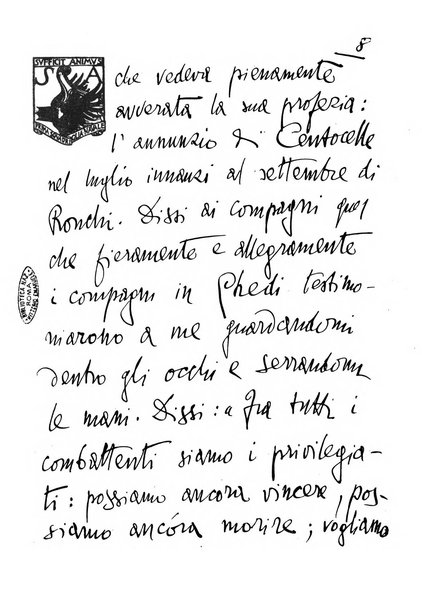 8
SUFFICIT ANIMUS
S A
che vedeva pienamente
avverata la sua profezia:
l'annunzio di Centocelle
nel luglio innanzi al settembre di
Ronchi. Dissi ai compagni quel
che fieramente e allegramente
i compagni in Ghedi testimo-
niarono a me guardandomi
dentro gli occhi e serrandomi
le mani. Dissi: « Fra tutti i
combattenti siamo i privilegia-
ti: possiamo ancora vincere, pos-
siamo ancóra morire; vogliamo